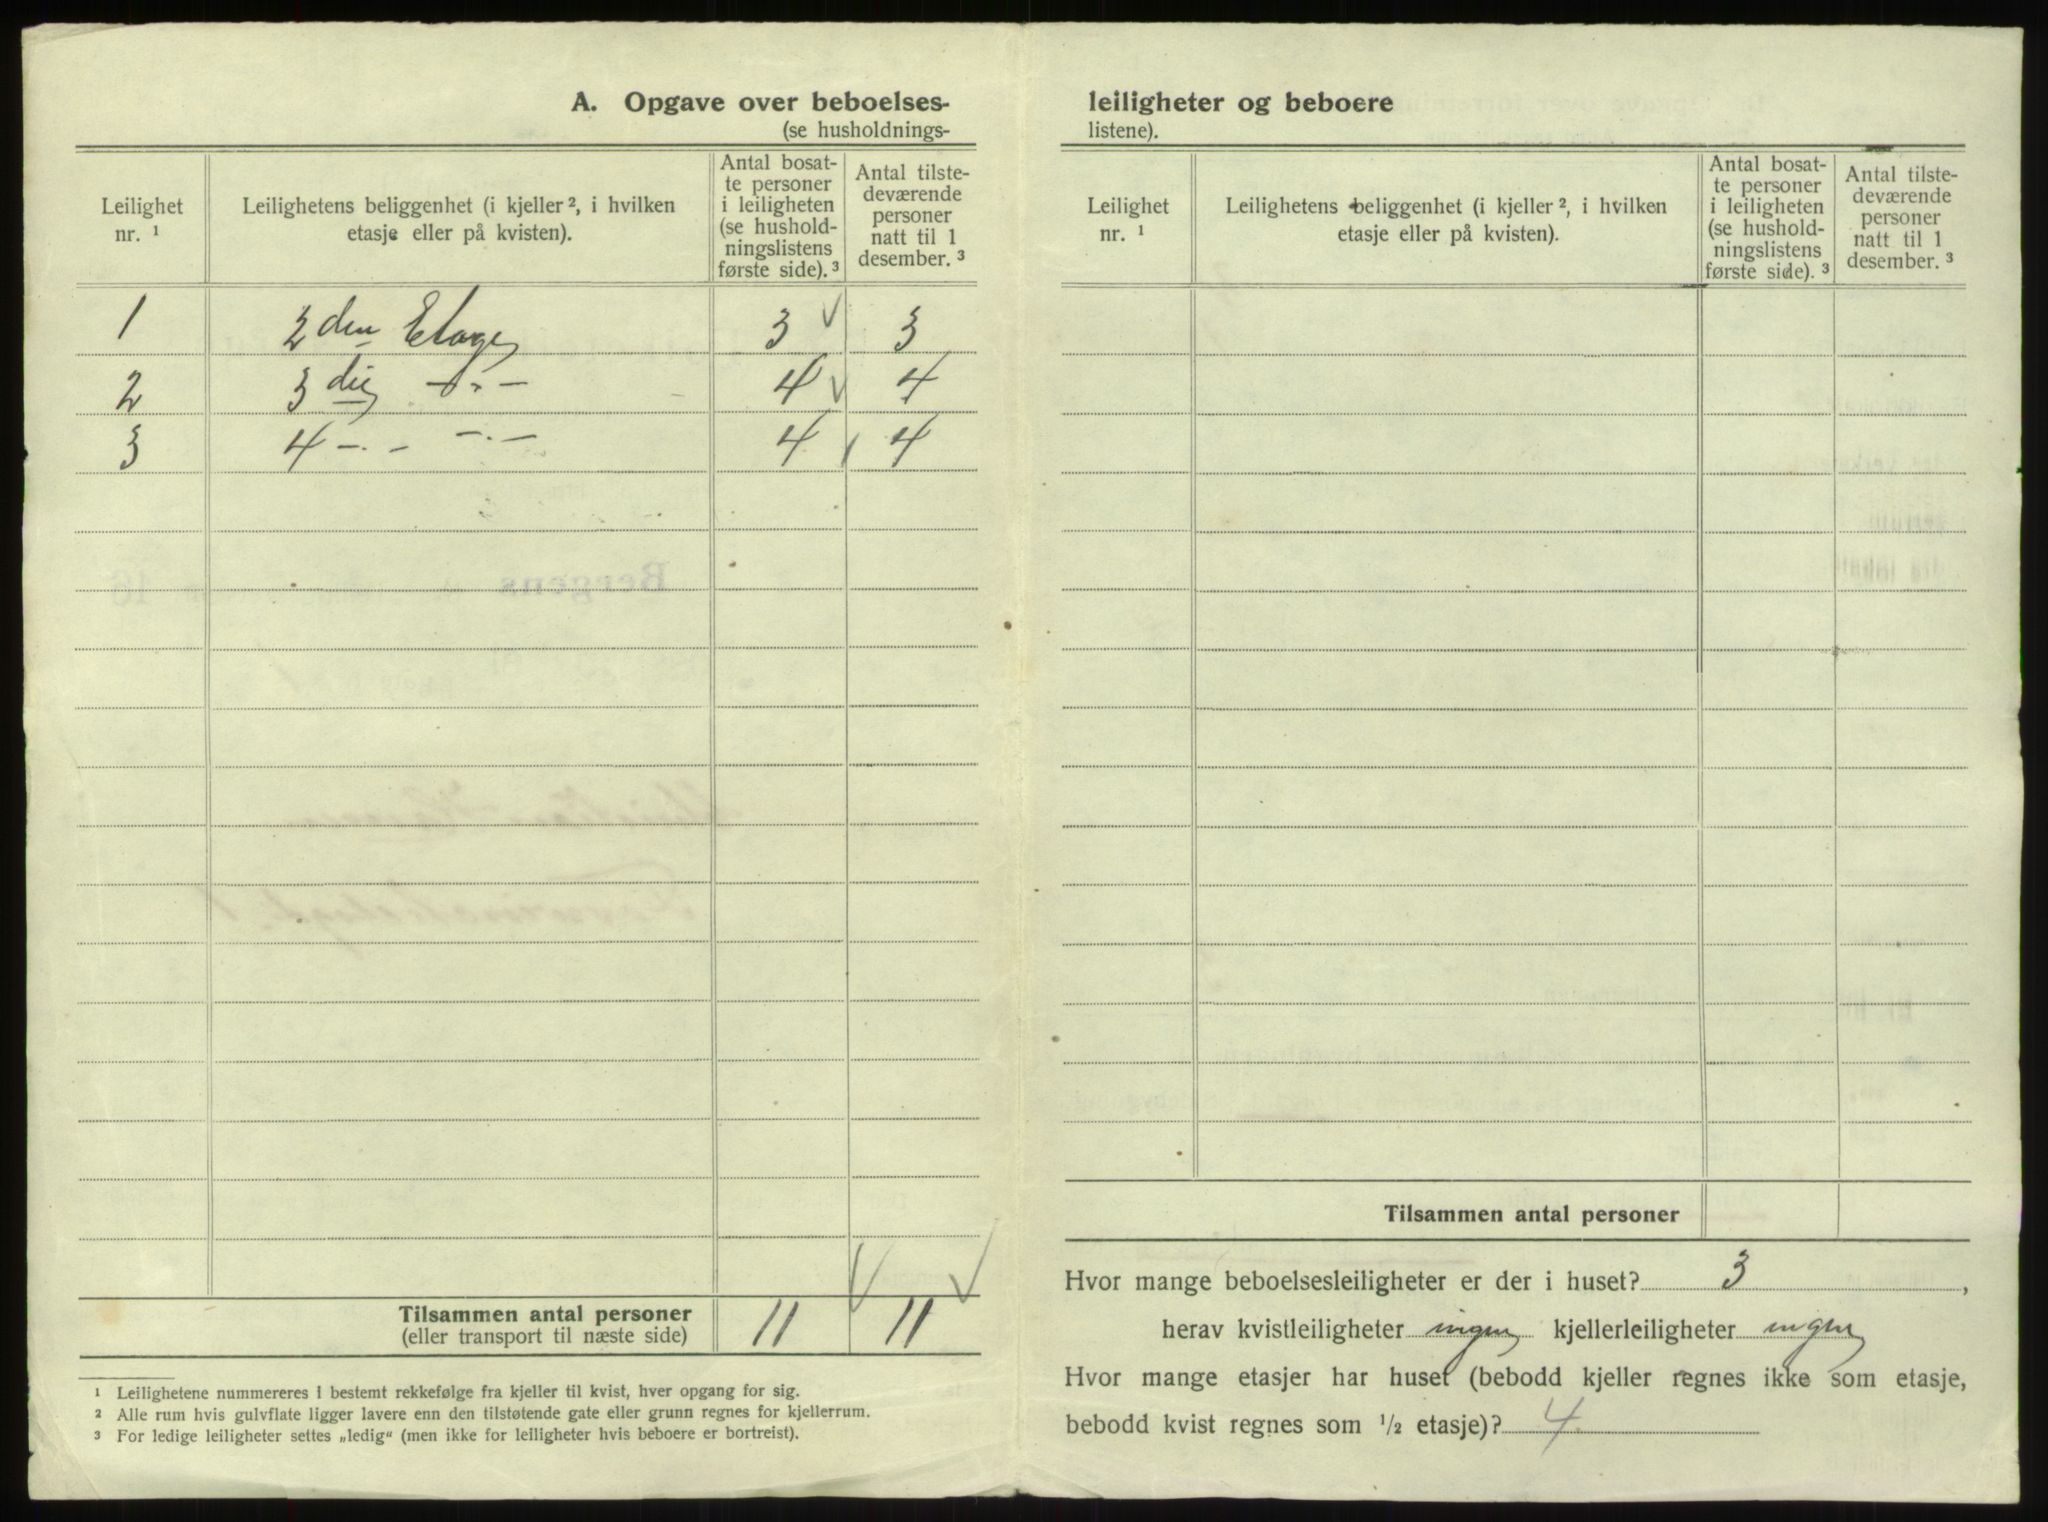 A. Opgave over beboelses-
(se husholdnings-
Leilighet
nr. ¹
Leilighetens beliggenhet (i kjeller ², i hvilken
etasje eller på kvisten).
Antal bosat-
te personer
i leiligheten
(se hushold-
ningslistens
første side). ³
Antal tilste-
deværende
personer
natt til 1
desember. ³
1 2 den Etage 3 3
2 3 die — " — 4 4
3 4 —.— —.— 4 4
Tilsammen antal personer
(eller transport til næste side) 11 11
¹ Leilighetene nummereres i bestemt rekkefølge fra kjeller til kvist, hver opgang for sig.
² Alle rum hvis gulvflate ligger lavere enn den tilstøtende gate eller grunn regnes for kjellerrum.
³ For ledige leiligheter settes „ledig“ (men ikke for leiligheter hvis beboere er bortreist).
leiligheter og beboere
listene).
Leilighet
nr. ¹
Leilighetens beliggenhet (i kjeller ², i hvilken
etasje eller på kvisten).
Antal bosat-
te personer
i leiligheten
(se hushold-
ningslistens
første side). ³
Antal tilste-
deværende
personer
natt til 1
desember. ³
Tilsammen antal personer
Hvor mange beboelsesleiligheter er der i huset? 3 ,
herav kvistleiligheter ingen kjellerleiligheter ingen
Hvor mange etasjer har huset (bebodd kjeller regnes ikke som etasje,
bebodd kvist regnes som ½ etasje)? 4